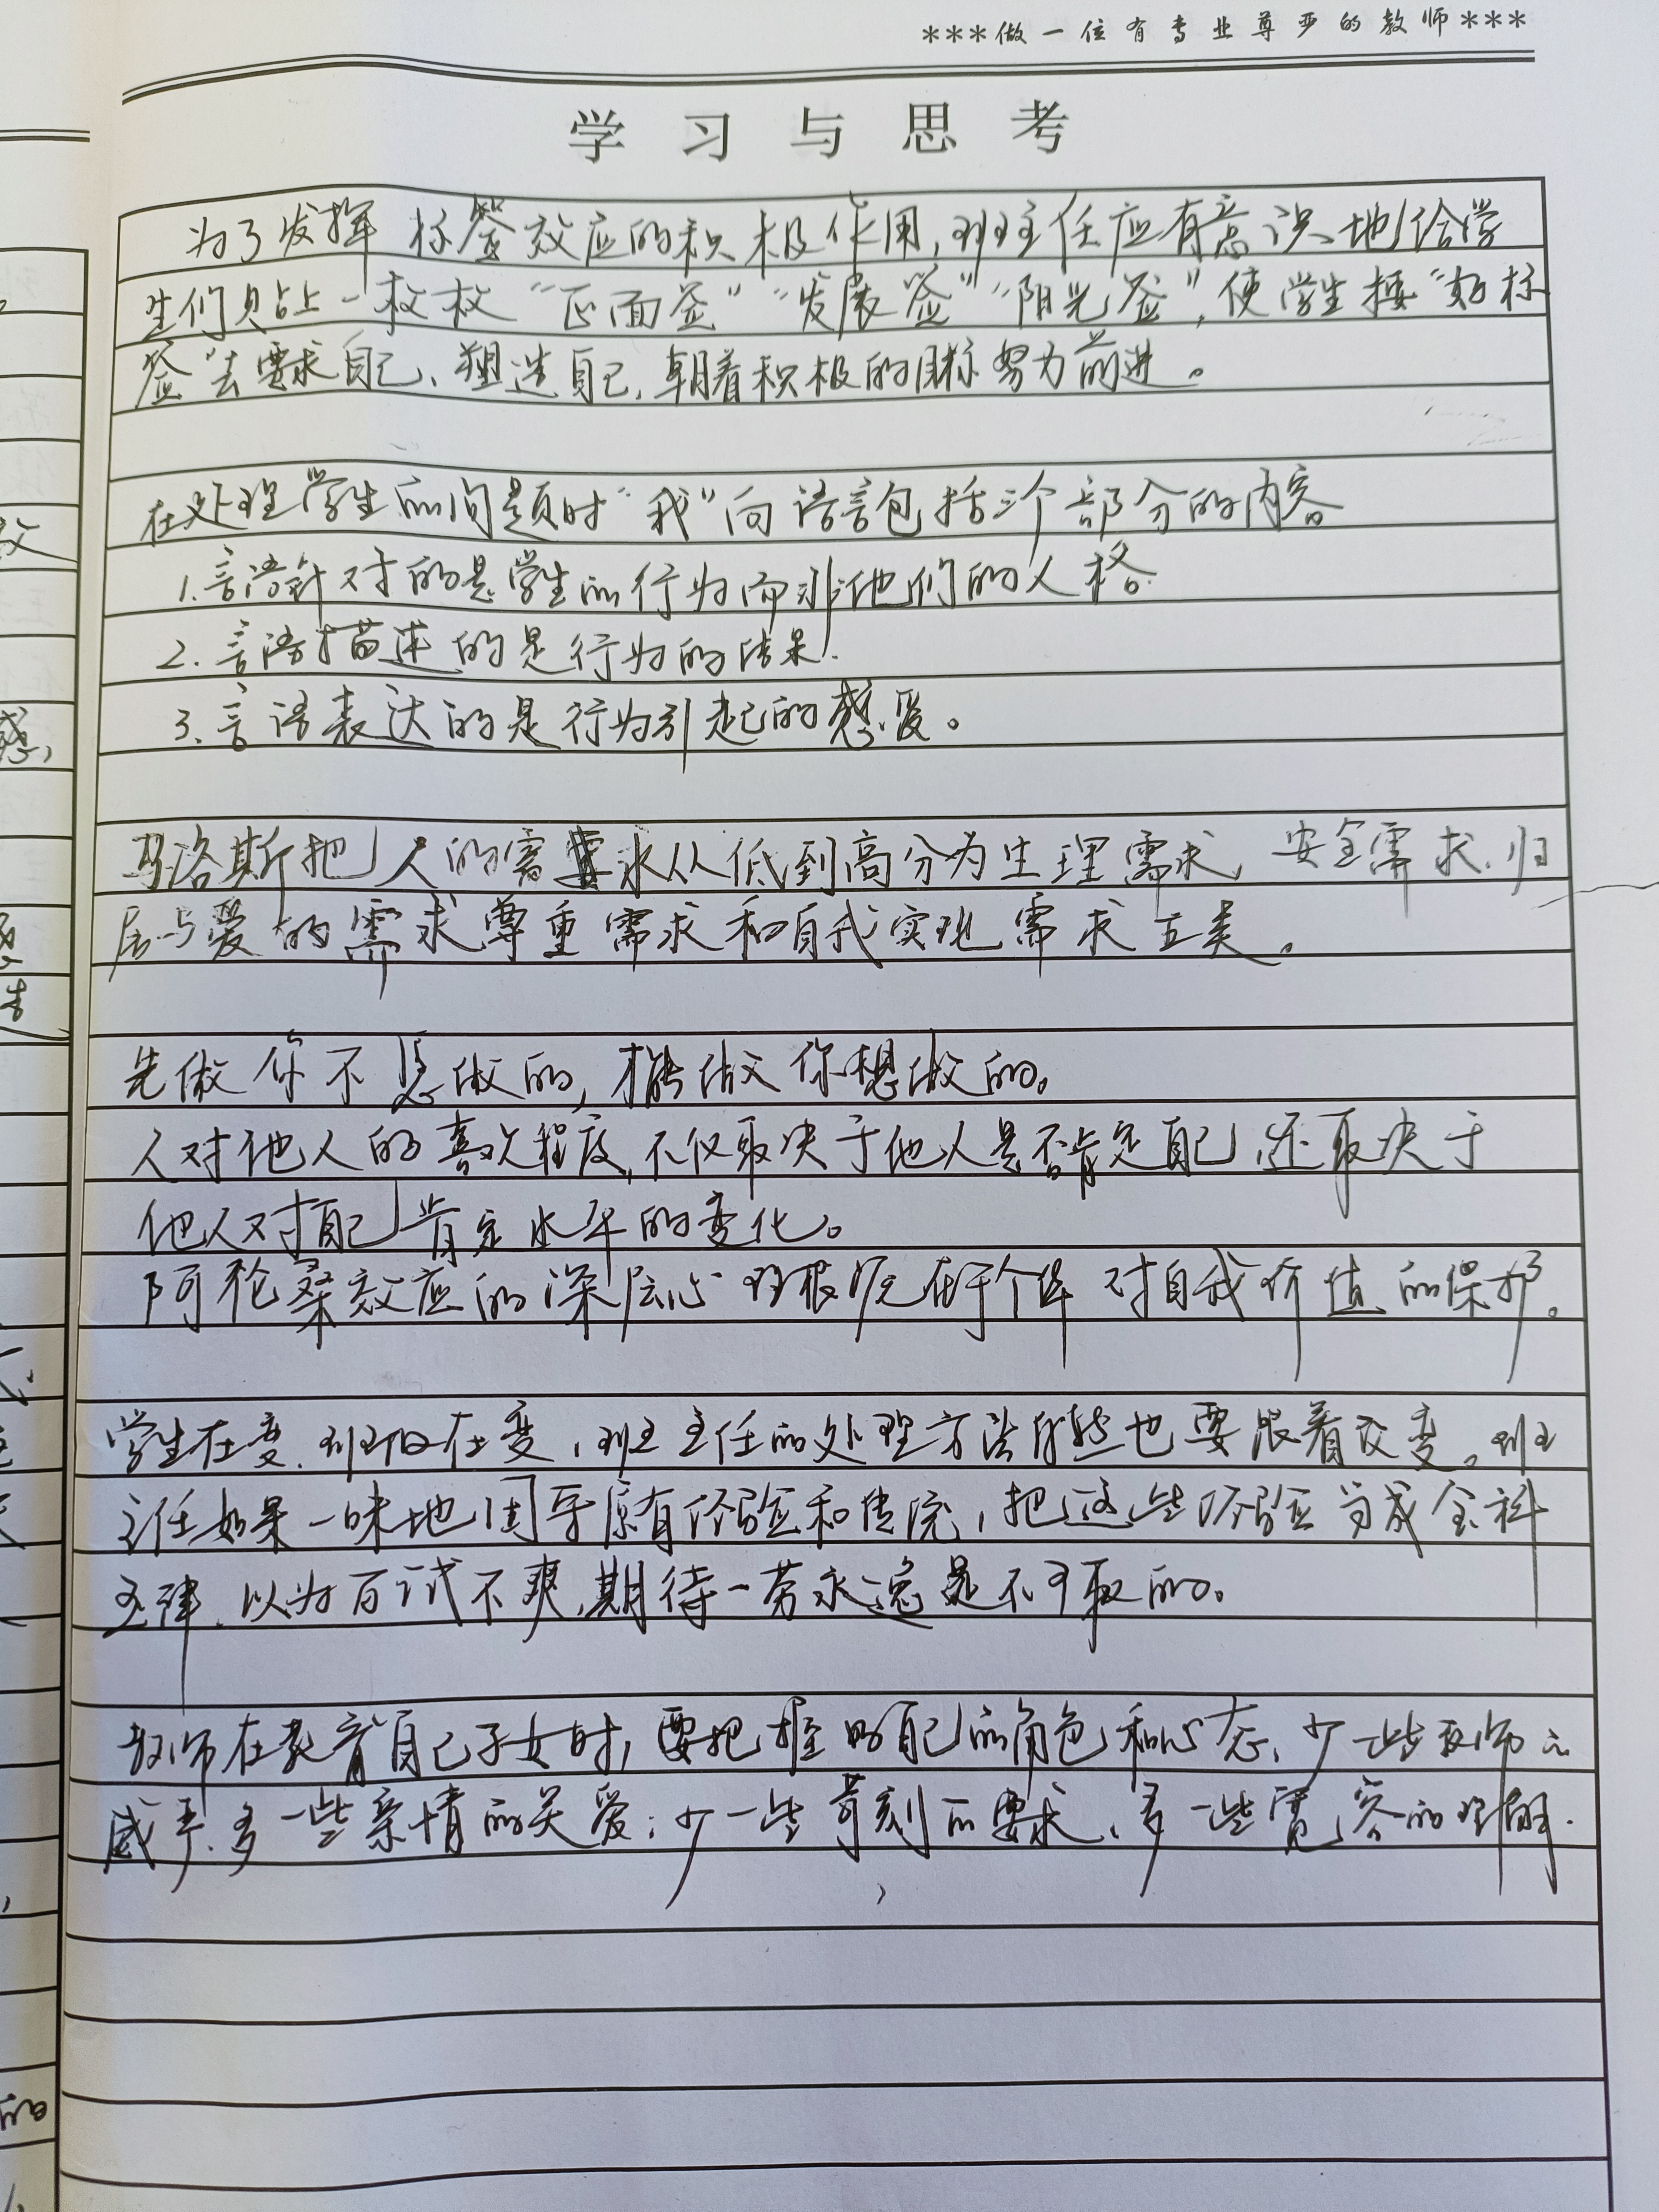 ***做一位有专业尊严的教师***
学习与思考
为了发挥标签效应的积极作用,班主任应有意识地给学
生们贴上一枚枚“正面签”“发展签”“阳光签”,使学生按“好标
签”去要求自己、塑造自己,朝着积极的目标努力前进。
在处理学生的问题时“我”向语言包括三个部分的内容
1.言语针对的是学生的行为而非他们的人格.
2.言语描述的是行为的结果.
3.言语表达的是行为引起的感受。
马洛斯把人的需要求从低到高分为生理需求、安全需求、归
属与爱的需求尊重需求和自我实现需求五类。
先做你不想做的,才能做你想做的。
人对他人的喜欢程度,不仅取决于他人是否肯定自己,还取决于
他人对自己肯定水平的变化。
阿伦森效应的深层心理根源在于个体对自我价值的保护。
学生在变、班级在变,班主任的处理方法自然也要跟着改变。班
主任如果一味地困守原有经验和传统,把这些经验当成金科
玉律、以为百试不爽,期待一劳永逸是不可取的。
教师在教育自己子女时,要把握好自己的角色和心态、少一些教师的
威严、多一些亲情的关爱;少一些苛刻的要求、多一些宽容的理解.